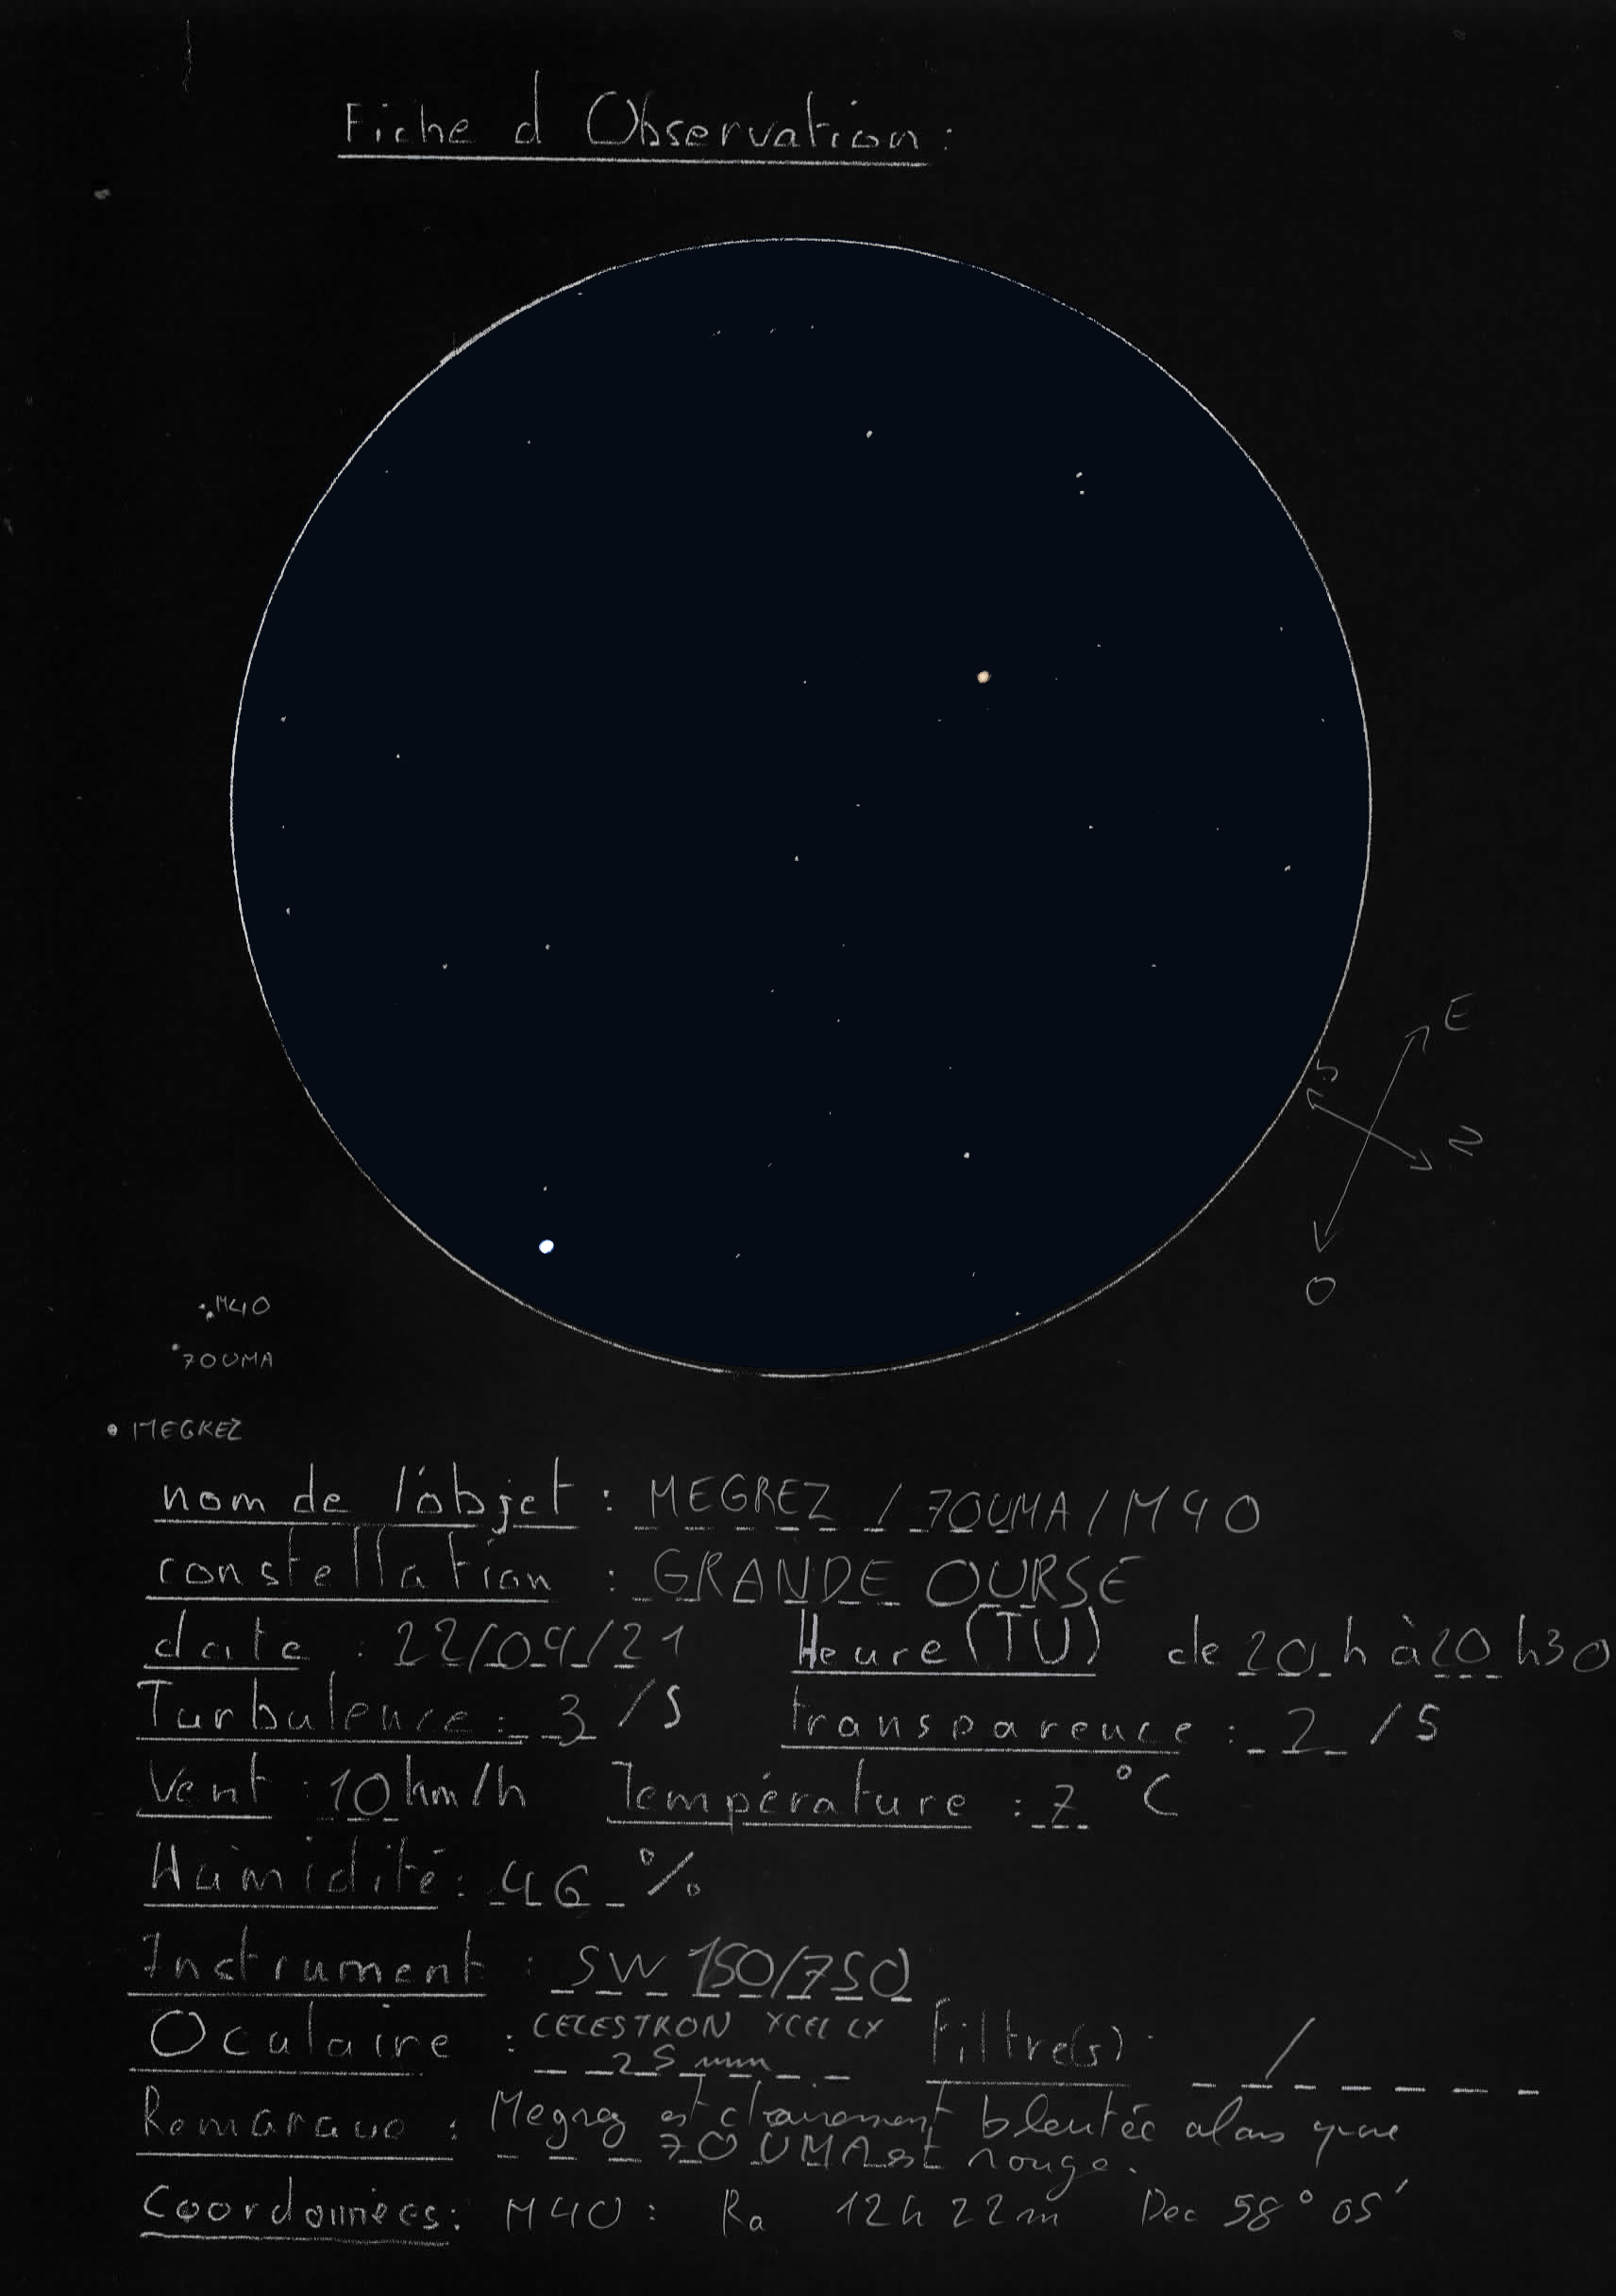 Fiche d Observation :
E
S
N
O
M40
70UMA
MEGREZ
nom de l'objet : MEGREZ / 70UMA / M40
constellation : GRANDE OURSE
date : 22/04/21 Heure (TU) de 20 h à 20 h30
Turbulence : 3 /5 transparence : 2 /5
Vent : 10 km/h Température : 7 °C
Humidité : 46 %
Instrument : SW 150/750
Oculaire : CELESTRON XCEL LX Filtre(s) : /
25 mm
Remarque : Megrez est clairement bleutée alors que
70 UMA est rouge.
Coordonnées : M40 : Ra 12h 22m Dec 58° 05'